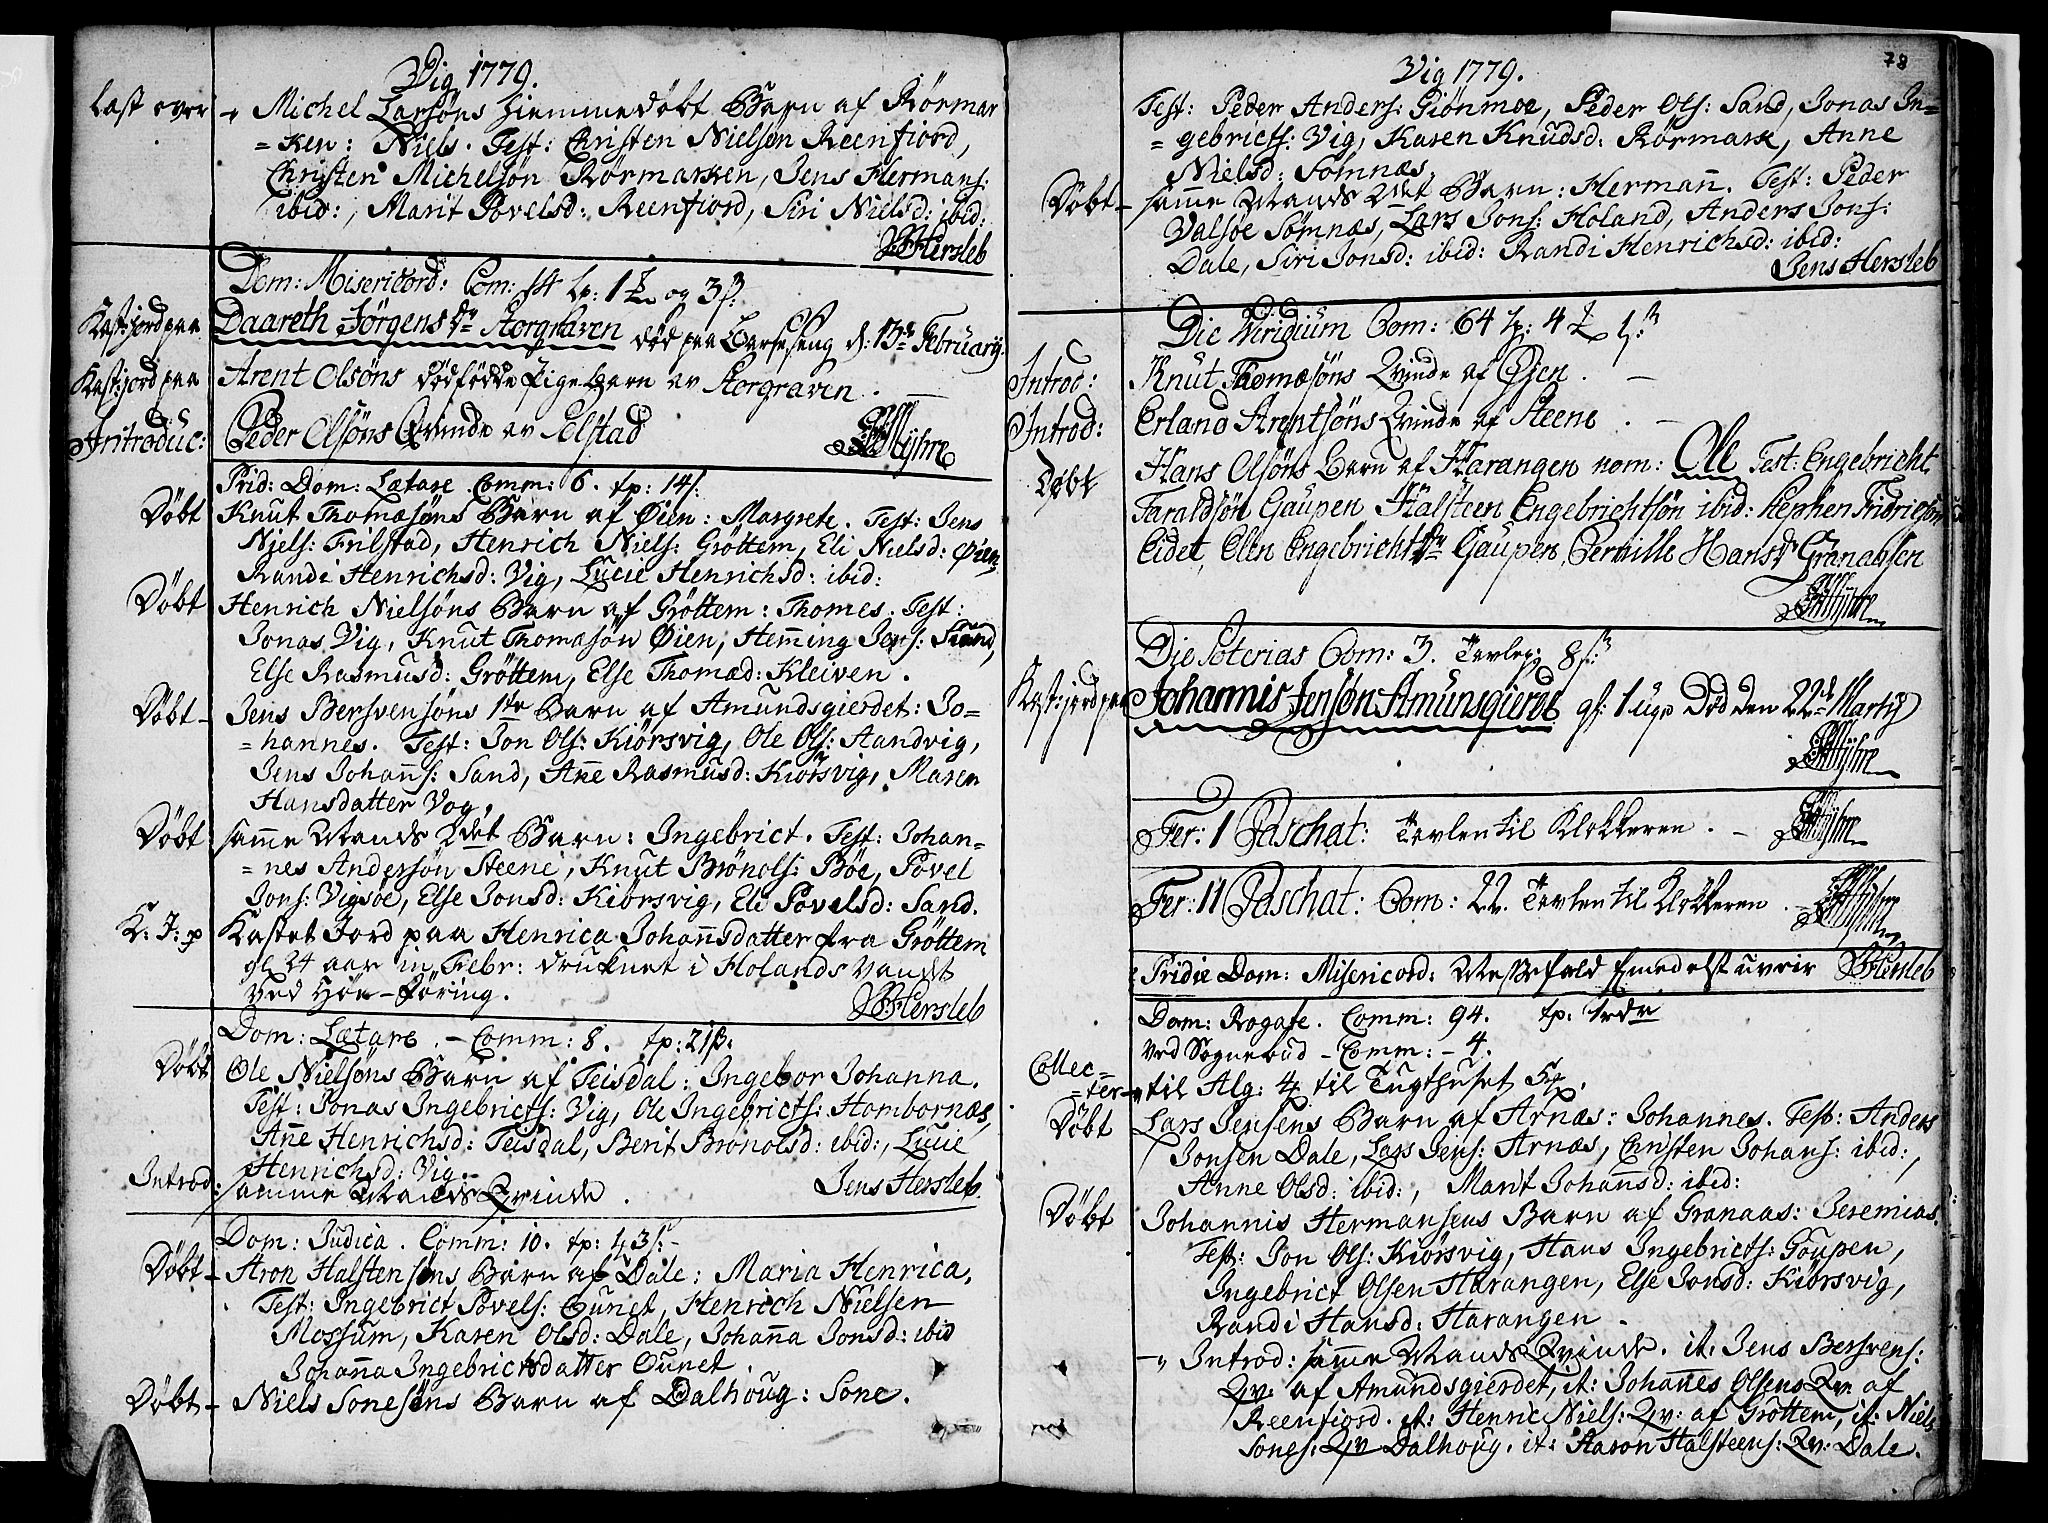 Vig 1779.
Læst over - Michel Larsöns hiemmedöbt Barn af Rörmar
= ken: Niels. Test: Christen Nielsen Reenfiord,
Christen Michelsön Rörmarken, Jens Hermans:
ibid:, Marit Povelsd: Reenfiord, Siri Nielsd: ibid:
Hersleb
Dom: Misericord: Com: 14 tp: 1 og 3 ß:
Kast: jord paa Daareth Jörgens dr Storgraven död paa Barselseng d: 13de Februarij.
Kast: jord paa Arent Olsöns dödfödde Pige Barn av Storgraven.
Introduc: Peder Olsöns Qvinde av Solstad
Prid: Dom: Lætare Comm: 6. tp: 14 ß:
Döbt Knut Thomæsöns Barn af Öien: Margrete. Test: Jens
Niels: Frilstad, Henrich Niels: Gröttem, Eli Nielsd: Öien
Randi Henrichsd: Vig, Lucie Henrichsd: ibid:
Döbt Henrich Nielsöns Barn af Gröttem: Thomes. Test:
Jonas Vig, Knut Thomasön Öien, Hemming Jens: Strand,
Else Rasmusd: Gröttem, Else Thomæd: Kleiven.
Döbt - Jens Bersvensöns 1ste Barn af Amundsgierdet: Jo=
= hannes. Test: Jon Ols: Kiörsvig, Ole Ols: Aandvig,
Jens Johans: Sand, Ane Rasmusd: Kiörsvig, Maren
Hansdatter Vog.
Döbt samme Mands 2det Barn: Ingebrict. Test: Johan=
= nes Andersön Steene, Knut Brönols: Böe, Povel
Jons: Vigsöe, Else Jonsd: Kiörsvig, Eli Povelsd: Sand.
K: J: p Kastet Jord paa Henrica Johansdatter fra Gröttem
gl 24 aar in Febr: druknet i Holands Vandt
ved Höe-Föring.
Hersleb
Dom: Lætare. - Comm: 8. tp: 21 ß:
Döbt Ole Nielsöns Barn af Teisdal: Ingebor Johanna.
Test: Jonas Ingebricts: Vig, Ole Ingebricts: Hombornæs,
Ane Henrichsd: Teisdal, Berit Brönolsd: ibid:, Lucie
Henrichsd: Vig.
Introd: samme Mands Qvinde. Jens Hersleb.
Dom: Judica. Comm: 10. tp: 43 ß: -
Döbt - Aron Halstensöns Barn af Dale: Maria Henrica.
Test: Ingebrict Povels: Ounet, Henrich Nielsen
Mossum, Karen Olsd: Dale, Johana Jonsd: ibid
Johana Ingebrichsdatter Ounet.
Döbt - Niels Sonesöns Barn af Dalhoug: Sone.
Vig 1779.
78
Test: Peder Anders: Giönmoe, Peder Ols: Sand, Jonas In=
= gebricts: Vig, Karen Knudsd: Rörmark, Anne
Nielsd: Sömnæs.
Döbt - samme Mands 2det Barn: Herman. Test: Peder
Valsöe Sömnæs, Lars Jons: Holand, Anders Jons:
Dale, Siri Jonsd: ibid: Randi Henrichsd: ibid:
Jens Hersleb
Die Viridium Com: 64 tp: 4 1 ß:
Introd: Knut Thomæsöns Qvinde af Öien.
Introd: Erland Arentsöns Qvinde af Steene.
Döbt Hans Olsöns Barn af Harangen nom: Ole Test: Engebricht
Faraldsön Gaupen Halsteen Engebrichtsön ibid: Stephen Fridrichsön
Eidet, Elen Engebricht dr Gaupen, Pernille Hans dr Granaasen
Die Soterias Com: 3. Tavlep: 8 ß:
Kast: jord paa Johannis Jensön Amunsgierde gl: 1 uge Död den 22de Martij
Fer: 1 Paschat: Tavlen til Klokkeren. -
Fer: 11 Paschat: Com: 22. Tavlen til Klokkeren.
Pridie Dom: Misericord: Messefald formedelst uveir Hersleb
Dom: Rogate. Comm: 94. tp: 1 rdr
ved Sognebud - Comm: - 4.
Collec=
= ter - til Alg: 4 til Tugthuset
Döbt Lars Jensens Barn af Arnæs: Johannes. Test: Anders
Jonsen Dale, Lars Jens: Arnæs, Christen Johans: ibid:,
Anne Olsd: ibid:, Marit Johansd: ibid:
Döbt Johannis Hermansens Barn af Granaas: Jeremias.
Test: Jon Ols: Kiörsvig, Hans Ingebricts: Goupen,
Ingebrict Olsen Harangen, Else Jonsd: Kiörsvig,
Randi Hansd: Harangen.
- Introd: samme Mands Qvinde. it: Jens Bersvens:
Qv: af Amundsgierdet, it: Johanes Olsens Qv: af
Reenfiord. it: Henric Niels: Qv: af Gröttem, it: Niels
Sones: Qv Dalhoug. it: Aaron Halsteens: Qv: Dale.